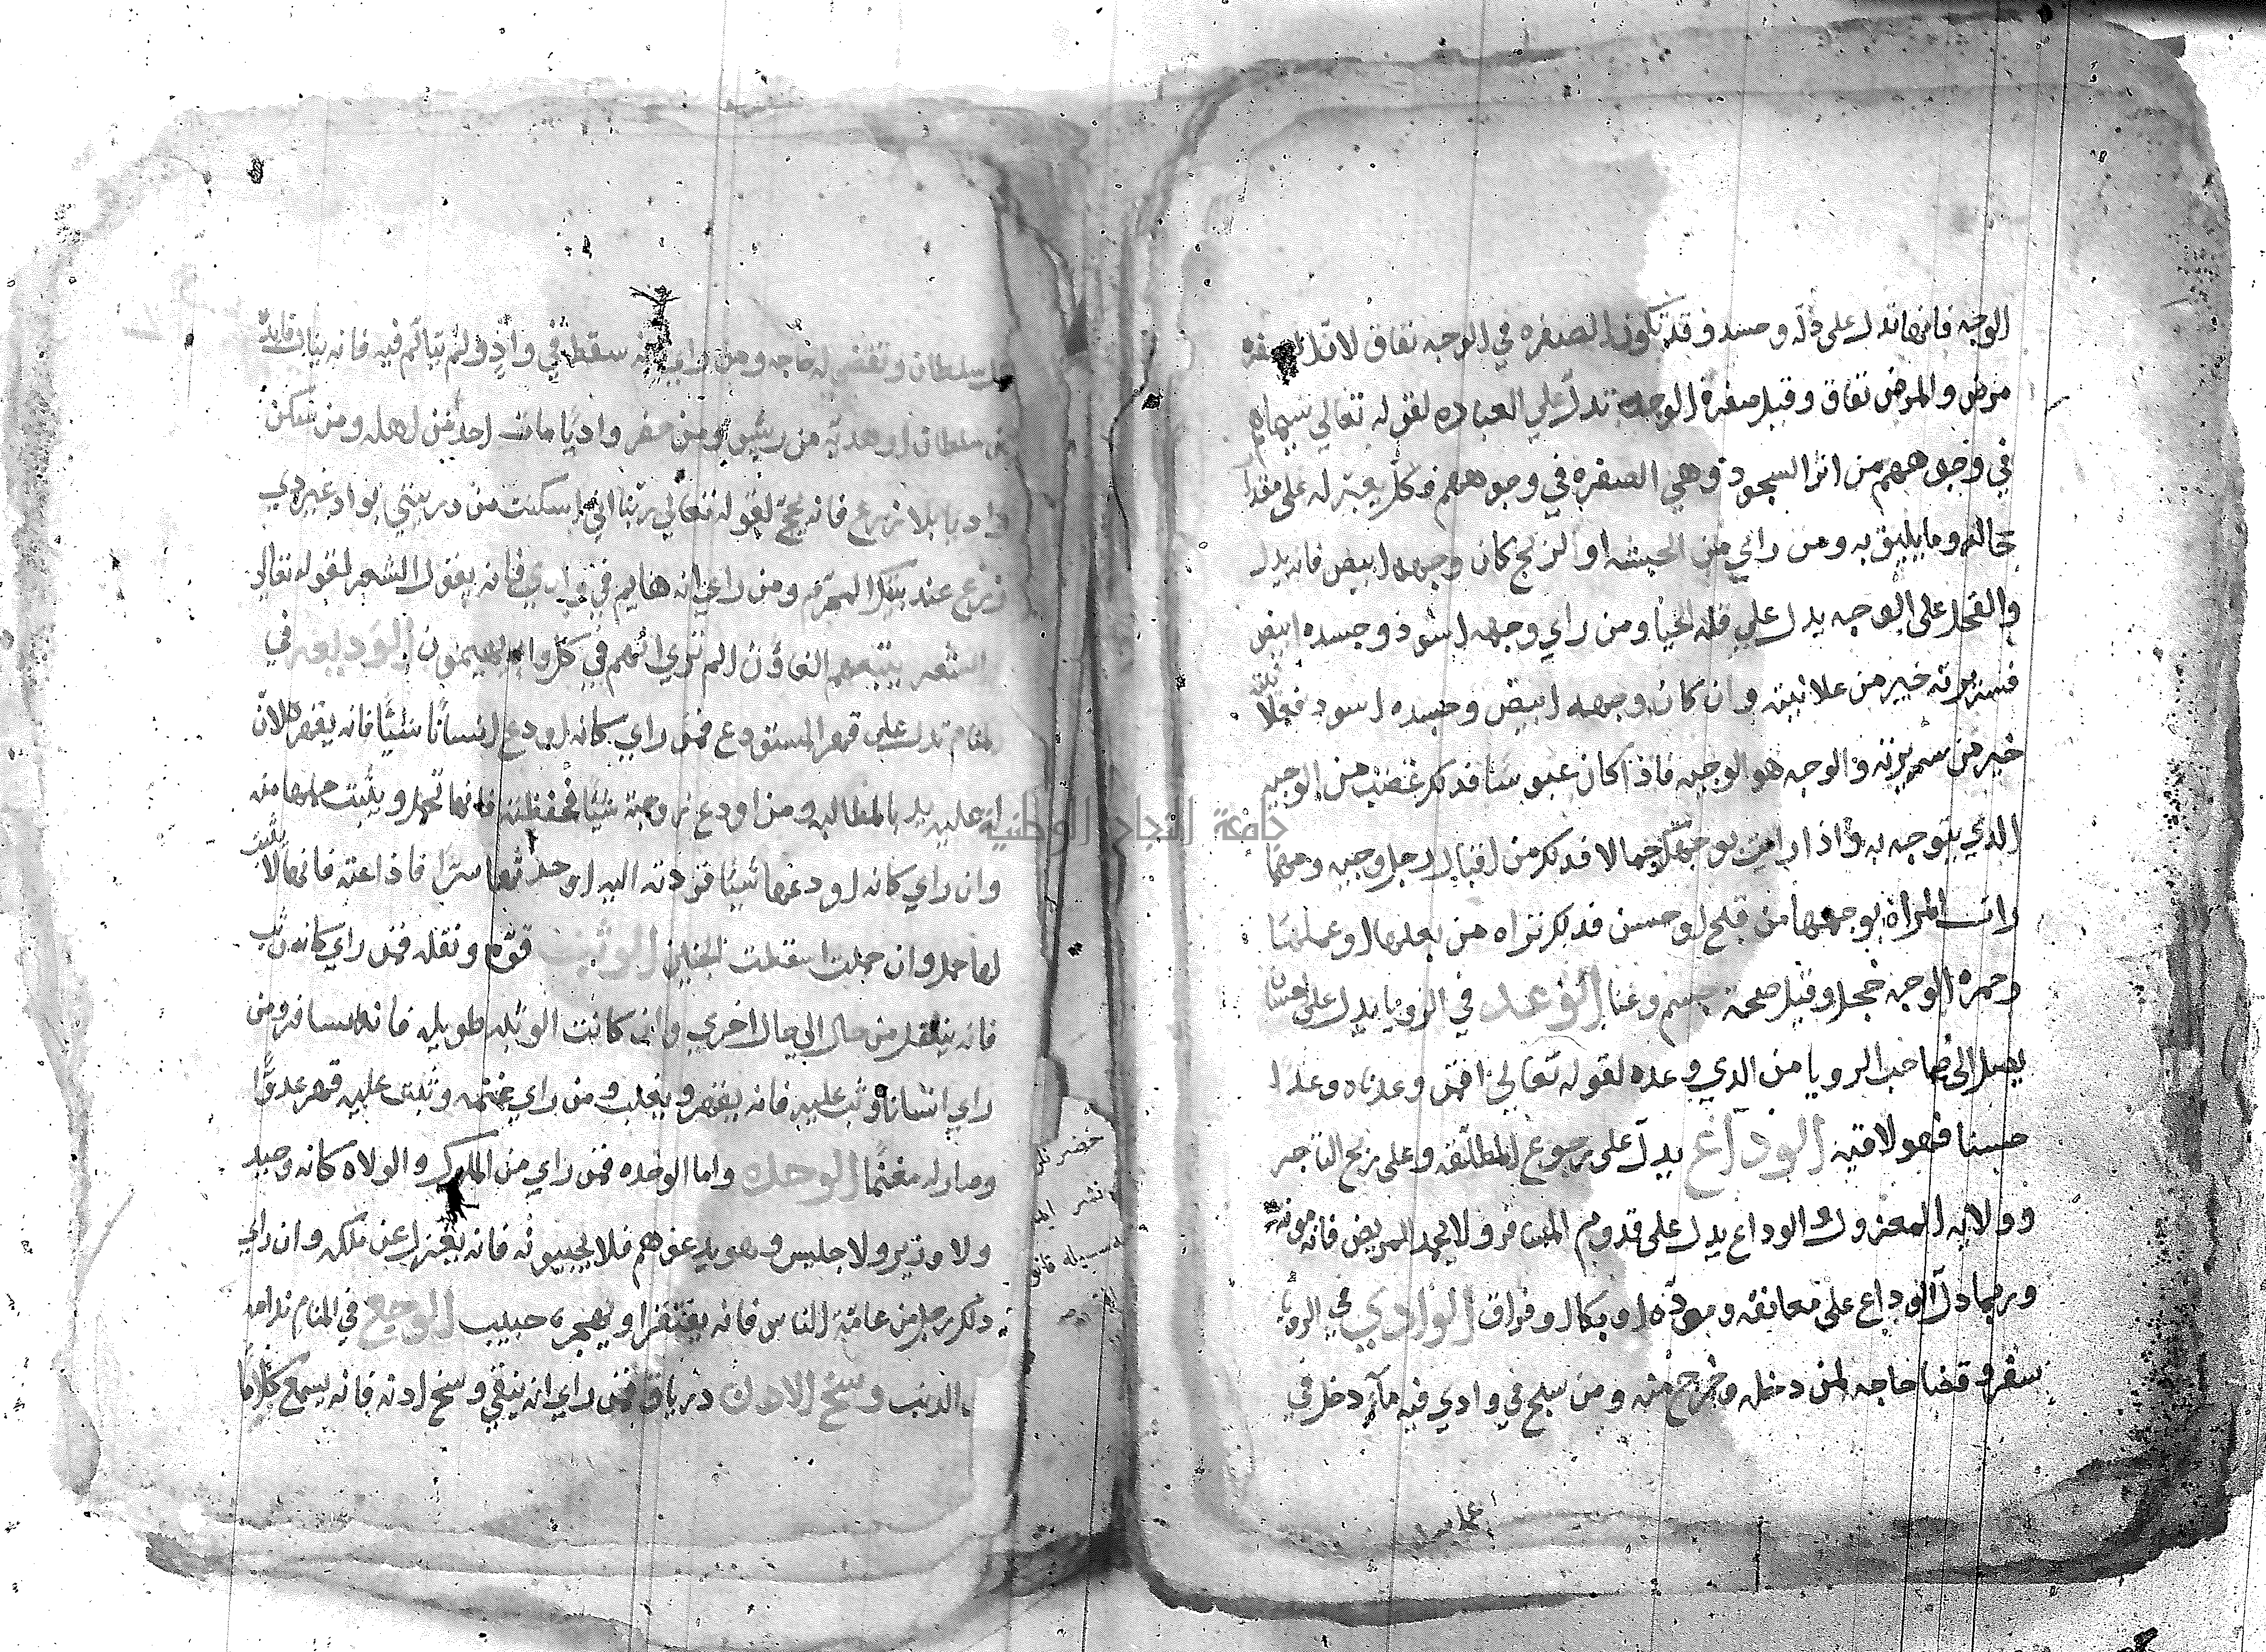 الوجه فانها تدل على ذله وحسد وقد تكون الصفره في الوجه نفاق لان الصفره
مرض والمرض نفاق وقيل صفرة الوجه تدل علي العباده لقوله تعالي سيماهم
في وجوههم من اثر السجود وهي الصفره في وجوههم فكل يعبر له على مقدار
حاله وما يليق به ومن راي من الحبشه او الزنج كان وجهه ابيض فانه يدل
والقحل على الوجه يدل علي قلة الحيا ومن راي وجهه اسود وجسده ابيض
فسريرته خير من علانيته وان كان وجهه ابيض وجسده اسود فعلانيته
خير من سريرته والوجه هو الوجيه فاذا كان عبوسا فذلك غضب من الوجيه
الذي يتوجه به واذا رايت بوجهك جمالا فذلك من اقبال رجل وجيه ومهما
رات المراة بوجهها من قبح او حسن فذلك تراه من بعلها او عملها
وحمرة الوجه خجل وقيل صحة جسم وغنا الوعد في الرويا يدل على احسان
يصل الى صاحب الرويا من الذي وعده لقوله تعالى افمن وعدناه وعدا
حسنا فهو لاقيه الوداع يدل على رجوع المطلقه وعلى ربح التاجر
وولايه المعزول والوداع يدل على قدوم المسافر ولا يحمد المريض فانه موته
وربما دل الوداع على معانقه ومودّه او بكا او فراق الوادي في الرويا
سفر وقضا حاجه لمن دخله وخرج منه ومن سبح في وادي فيه ماء دخل في
سلطان وتقضي له حاجه ومن راي انه سقط في وادٍ ولم يتالم فيه فانه ينال فايدة
من سلطان او هديه من رييس ومن حفر واديا مات احد من اهله ومن سكن
واديا بلا زرع فانه يحج لقوله تعالي ربنا اني اسكنت من دريتي بواد غير دي
زرع عند بيتك المحرم ومن راي انه هايم في وادي فانه يقول الشعر لقوله تعالي
الشعر يتبعهم الغاؤن الم تري انهم في كل واد يهيمون الوديعه في
المنام تدل على قهر المستودع فمن راي كانه اودع انسانا شيئا فانه يقهره لان
له عليه يد بالمطالبه ومن اودع زوجته شيئا فحفظته فانها تحمل ويثبت حملها منه
وان راي كانه اودعها شيئا فردته اليه او حدثها سرا فاذاعته فانها لا يثبت
لها حمل وان حملت اسقطت الجنين الوثب قوه ونقله فمن راي كانه وثب
فانه ينتقل من حال الي حال اخري وان كانت الوثبه طويله فانه يسافر ومن
راي انسانا وثب عليه فانه يقهر ويغلب ومن راي غنمه وثبت عليه قهر عدوّا
وصار له مغنما الوحده واما الوحده فمن راي من الملوك والولاه كانه وحيد
ولا وزير ولا جليس وهو يدعوهم فلا يجيبونه فانه يعزل عن ملكه وان راي
ذلك رجل من عامة الناس فانه يفتقر او يهجره حبيب الوجع في المنام ندامه
الذنب وسخ الادن درياق فمن راي انه ينقي وسخ ادنه فانه يسمع كلاما
جامعة النجاح الوطنية